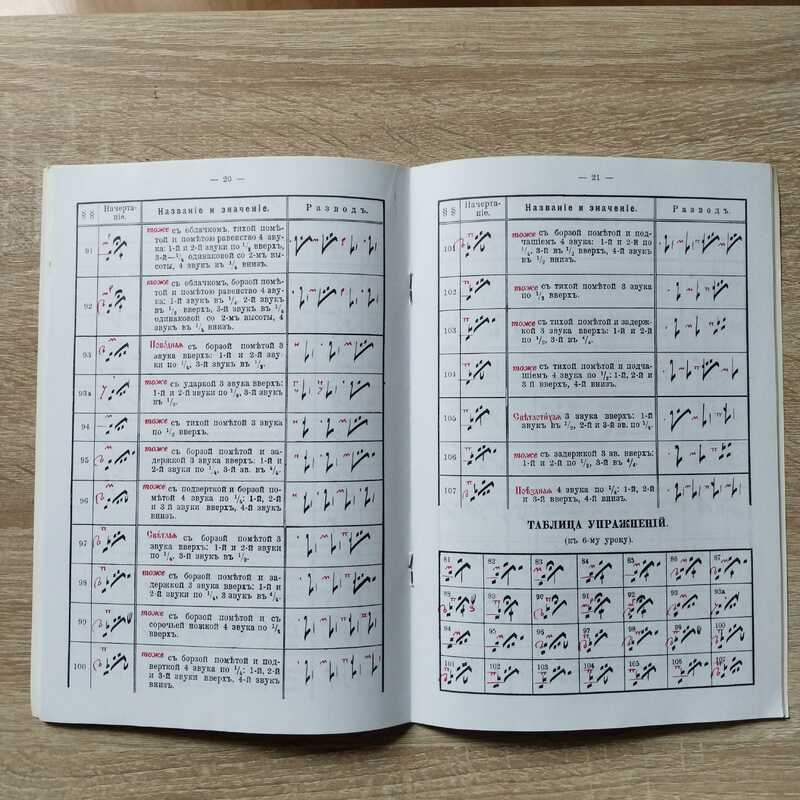 — 20 —
№№
Начерта-
ніе.
Названіе и значеніе.
Разводъ.
91
тоже съ облачкомъ, тихой помѣ-
той и помѣтою равенство 4 зву-
ка: 1-й и 2-й звуки по 1/2 вверхъ,
одинаковой со 2-мъ вы-
соты, 4 звукъ въ внизъ.
92
тоже съ облачкомъ, борзой помѣ-
той и помѣтою равенство 4 зву-
ка: 1-й звукъ въ 1/4, 2-й звукъ
въ 1/2 вверхъ, 3-й звукъ въ
одинаковой со 2-мъ высоты, 4
звукъ въ внизъ.
93
съ борзой помѣтой 3
звука вверхъ: 1-й и 2-й зву-
ки по 1/4, 3-й звукъ въ 1/2.
93а
тоже съ ударкой 3 звука вверхъ:
1-й и 2-й звуки по 1/4, 3-й звукъ
въ 1/2.
94
тоже съ тихой помѣтой 3 звука
по 1/2 вверхъ.
95
тоже съ борзой помѣтой и за-
держкой 3 звука вверхъ: 1-й и
2-й звуки по 1/4, 3-й зв. въ 4/4.
96
тоже съ подверткой и борзой по-
мѣтой 4 звука по 1/4: 1-й, 2-й
и 3-й звуки вверхъ, 4-й звукъ
внизъ.
97
съ борзой помѣтой 3
звука вверхъ: 1-й и 2-й звуки
по 1/4, 3-й звукъ въ 1/2.
98
тоже съ борзой помѣтой и за-
держкой 3 звука вверхъ: 1-й и
2-й звуки по 1/4, 3 звукъ въ 4/4.
99
тоже съ борзой помѣтой и съ
сорочьей ножкой 4 звука по 1/4
вверхъ.
100
тоже съ борзой помѣтой и под-
верткой 4 звука по 1/4: 1-й, 2-й
и 3-й звуки вверхъ, 4-й звукъ
внизъ.
— 21 —
№№
Начерта-
ніе.
Названіе и значеніе.
Разводъ.
101
тоже съ борзой помѣтой и под-
чашіемъ 4 звука: 1-й и 2-й по
1/4, 3-й въ 1/2 вверхъ, 4-й звукъ
въ 1/2 внизъ.
102
тоже съ тихой помѣтой 3 звука
по 1/2 вверхъ.
103
тоже съ тихой помѣтой и задерж-
кой 3 звука вверхъ: 1-й и 2-й
по 1/2, 3-й въ 4/4.
104
тоже съ тихой помѣтой и подча-
шіемъ 4 звука по 1/2: 1-й, 2-й и
3 й вверхъ, 4-й внизъ.
105
3 звука вверхъ: 1-й
звукъ въ 1/2, 2-й и 3-й зв. по 1/4.
106
тоже съ задержкой 3 зв. вверхъ:
1-й и 2-й по 1/2, 3-й въ 4/4.
107
4 звука по 1/4: 1-й, 2-й
и 3-й звуки вверхъ, 4-й внизъ.
ТАБЛИЦА УПРАЖНЕНІЙ.
(къ 6-му уроку).
81 82 83 84 85 86 87
88 89 90 91 92 93 93а
94 95 96 97 98 99 100
101 102 103 104 105 106 107